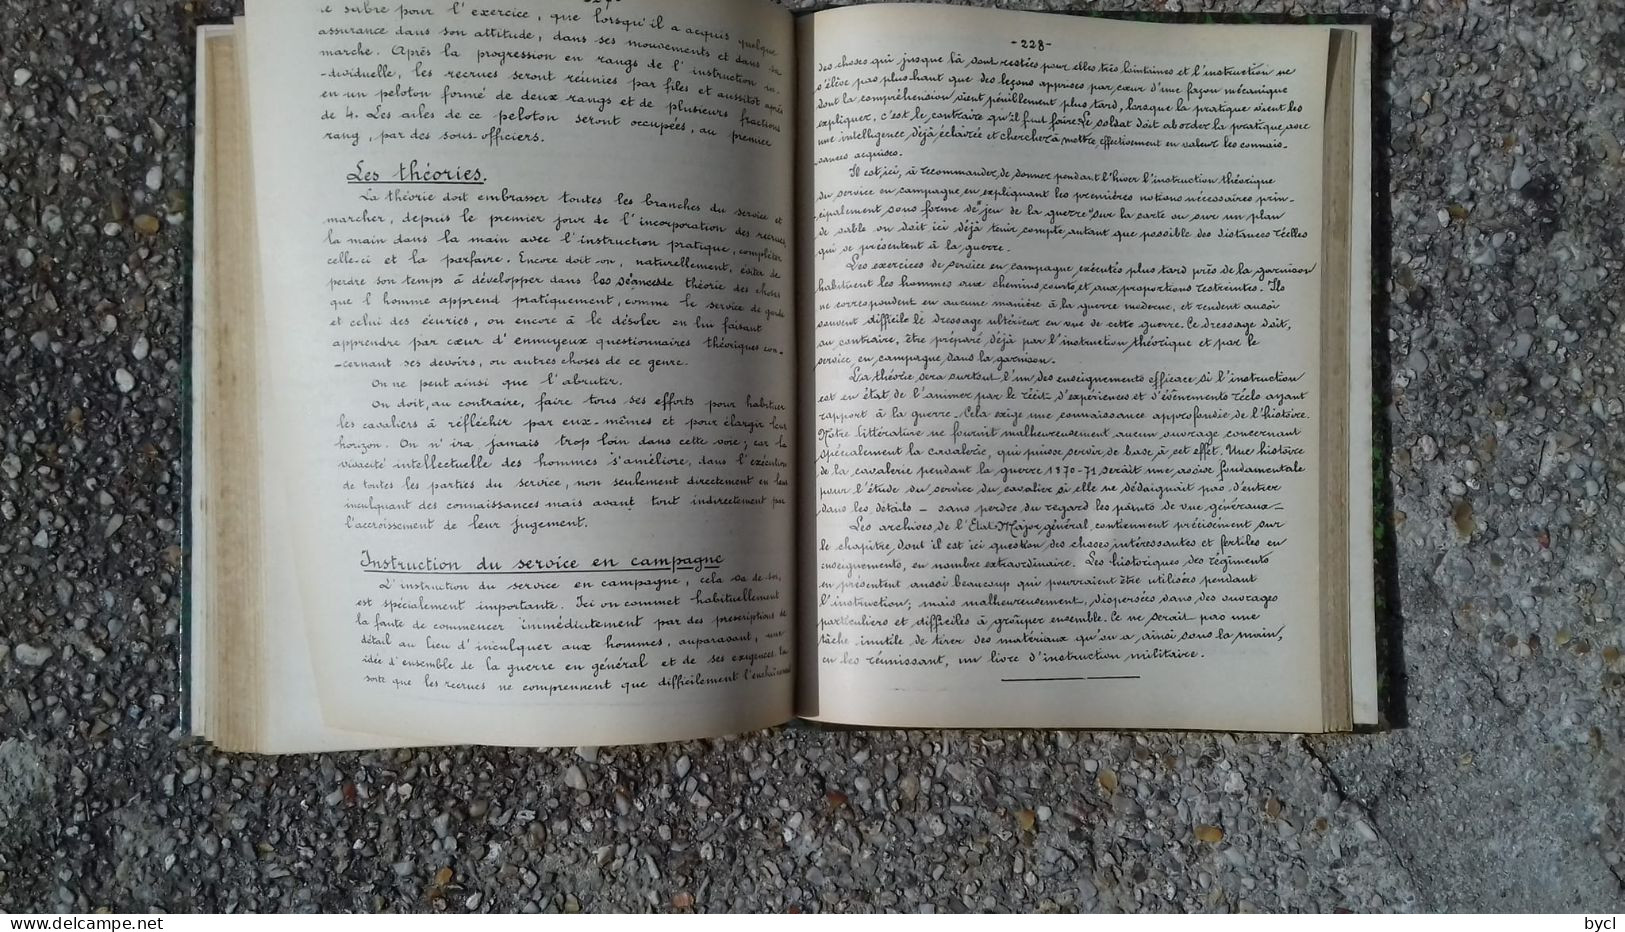 -227-
le sabre pour l'exercice, que lorsqu'il a acquis quelque
assurance dans son attitude, dans ses mouvements et dans sa
marche. Après la progression en rangs de l'instruction in-
-dividuelle, les recrues seront réunies par files et aussitôt après
en un peloton formé de deux rangs et de plusieurs fractions
de 4. Les ailes de ce peloton seront occupées, au premier
rang, par des sous-officiers.
Les théories.
La théorie doit embrasser toutes les branches du service et
marcher, depuis le premier jour de l'incorporation des recrues,
la main dans la main avec l'instruction pratique, compléter
celle-ci et la parfaire. Encore doit-on, naturellement, éviter de
perdre son temps à développer dans les séances de théorie des choses
que l'homme apprend pratiquement, comme le service de garde
et celui des écuries, ou encore à le désoler en lui faisant
apprendre par cœur d'ennuyeux questionnaires théoriques con-
-cernant ses devoirs, ou autres choses de ce genre.
On ne peut ainsi que l'abrutir.
On doit, au contraire, faire tous ses efforts pour habituer
les cavaliers à réfléchir par eux-mêmes et pour élargir leur
horizon. On n'ira jamais trop loin dans cette voie; car la
vivacité intellectuelle des hommes s'améliore, dans l'exécution
de toutes les parties du service, non seulement directement en leur
inculquant des connaissances mais avant tout indirectement par
l'accroissement de leur jugement.
Instruction du service en campagne
L'instruction du service en campagne, cela va de soi,
est spécialement importante. Ici on commet habituellement
la faute de commencer immédiatement par des prescriptions de
détail au lieu d'inculquer aux hommes, auparavant, une
idée d'ensemble de la guerre en général et de ses exigences. En
sorte que les recrues ne comprennent que difficilement l'enchaînement
-228-
des choses qui jusque là sont restées pour elles très lointaines et l'instruction ne
s'élève pas plus haut que des leçons apprises par cœur d'une façon mécanique
dont la compréhension vient péniblement plus tard, lorsque la pratique vient les
expliquer, c'est le contraire qu'il faut faire. Le soldat doit aborder la pratique avec
une intelligence déjà éclairée et chercher à mettre effectivement en valeur les connais-
sances acquises.
Il est, ici, à recommander, de donner pendant l'hiver l'instruction théorique
du service en campagne, en expliquant les premières notions nécessaires prin-
cipalement sous forme de "jeu de la guerre" sur la carte ou sur un plan
de sable ou doit ici déjà tenir compte autant que possible des distances réelles
qui se présentent à la guerre.
Les exercices de service en campagne exécutés plus tard près de la garnison
habituent les hommes aux chemins courts, et aux proportions restreintes. Ils
ne correspondent en aucune manière à la guerre moderne, et rendent aussi
souvent difficile le dressage ultérieur en vue de cette guerre. Ce dressage doit,
au contraire, être préparé déjà par l'instruction théorique et par le
service en campagne dans la garnison.
La théorie sera surtout l'un des enseignements efficace si l'instruction
est en état de l'animer par le récit d'expériences et d'événements réels ayant
rapport à la guerre. Cela exige une connaissance approfondie de l'histoire.
Notre littérature ne fournit malheureusement aucun ouvrage concernant
spécialement la cavalerie, qui puisse servir de base à cet effet. Une histoire
de la cavalerie pendant la guerre 1870-71 serait une assise fondamentale
pour l'étude du service du cavalier si elle ne dédaignait pas d'entrer
dans les détails – sans perdre du regard les points de vue généraux –
Les archives de l'Etat-Major général contiennent précisément sur
le chapitre, dont il est ici question, des choses intéressantes et fertiles en
enseignements, en nombre extraordinaire. Les historiques des régiments
en présentent aussi beaucoup qui pourraient être utilisées pendant
l'instruction; mais malheureusement, dispersées dans des ouvrages
particuliers et difficiles à grouper ensemble. Ce ne serait pas une
tâche inutile de tirer des matériaux qu'on a ainsi sous la main,
en les réunissant, un livre d'instruction militaire.
www.delcampe.net
bycl